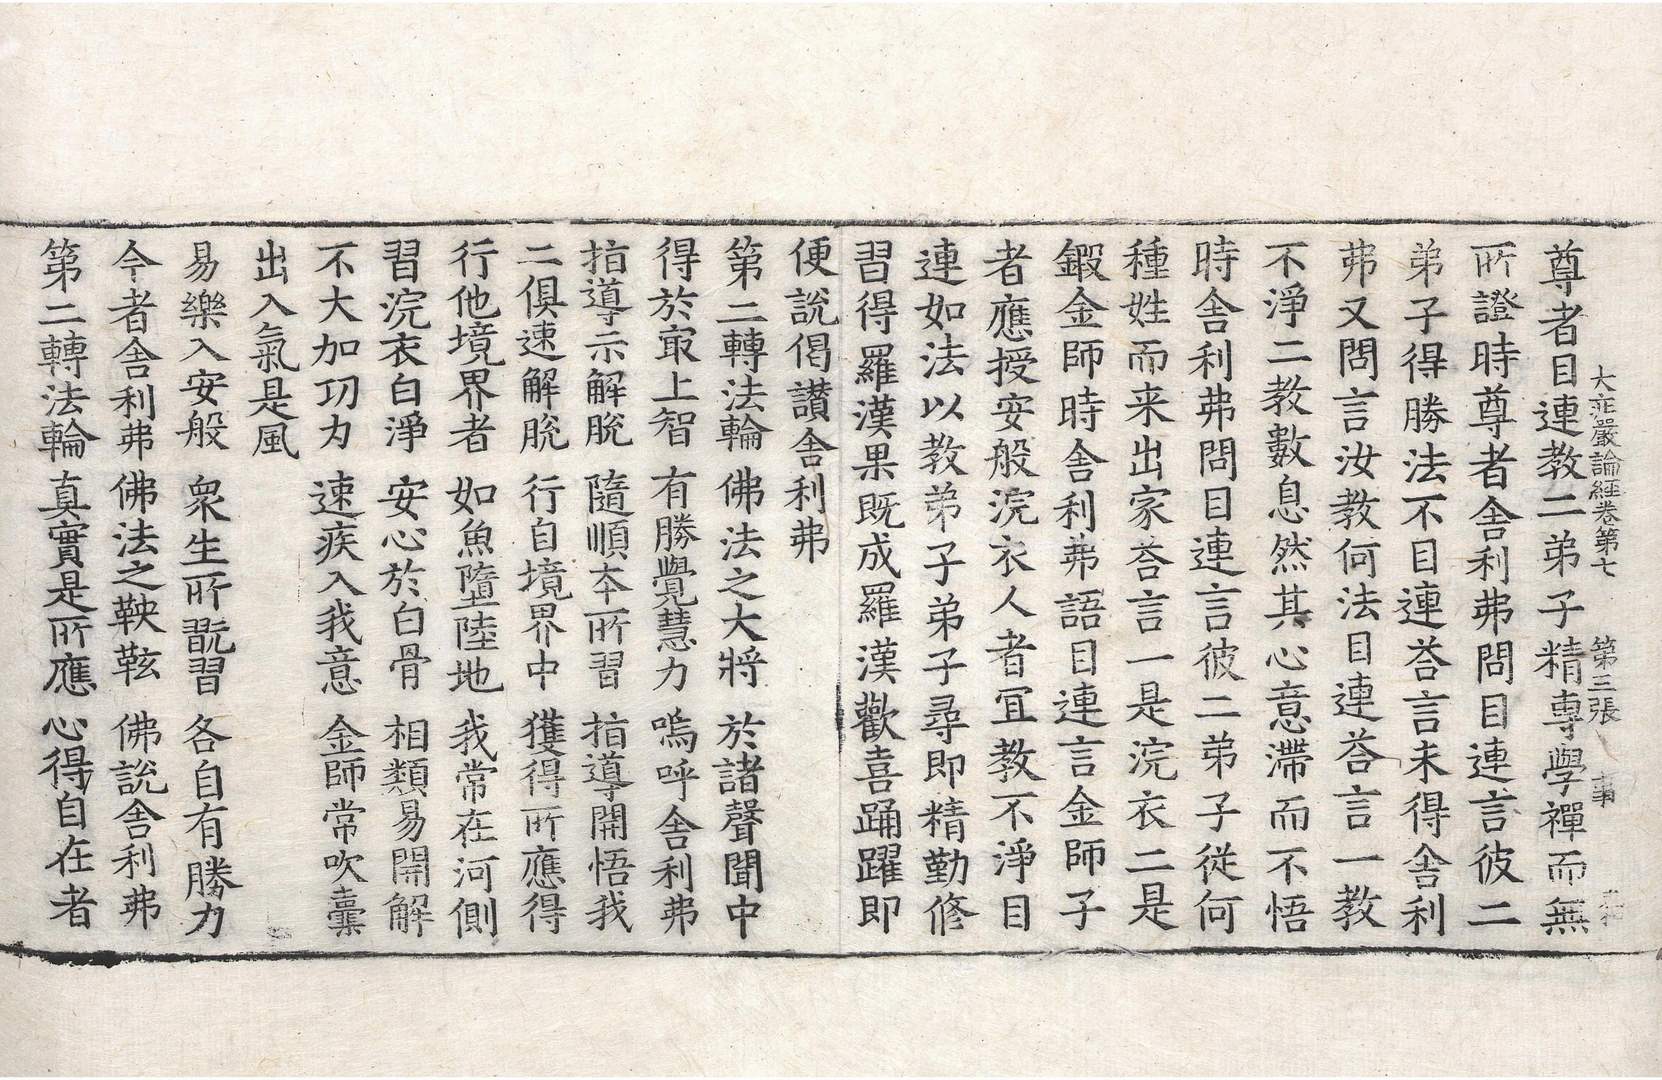 大莊嚴論經卷第七 第三張 事
尊者目連教二弟子精專學禪而無
所證時尊者舎利弗問目連言彼二
弟子得勝法不目連荅言未得舎利
弗又問言汝教何法目連荅言一教
不淨二教數息然其心意滯而不悟
時舎利弗問目連言彼二弟子從何
種姓而来出家荅言一是浣衣二是
鍛金師時舎利弗語目連言金師子
者應授安般浣衣人者冝教不淨目
連如法以教弟子弟子尋即精勤修
習得羅漢果既成羅漢歡喜踊躍即
便說偈讃舎利弗
第二轉法輪 佛法之大將 於諸聲聞中
得於㝡上智 有勝覺慧力 嗚呼舎利弗
指導示解脫 隨順本所習 指導開悟我
二俱速解脫 行自境界中 獲得所應得
行他境界者 如魚墮陸地 我常在河側
習浣衣白淨 安心於白骨 相類易開解
不大加功力 速疾入我意 金師常吹㯱
出入氣是風
易樂入安般 衆生所翫習 各自有勝力
今者舎利弗 佛法之鞅䡣 佛說舎利弗
第二轉法輪 真實是所應 心得自在者